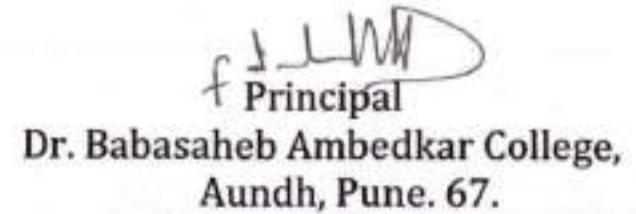 Principal
Dr. Babasaheb Ambedkar College,
Aundh, Pune. 67.